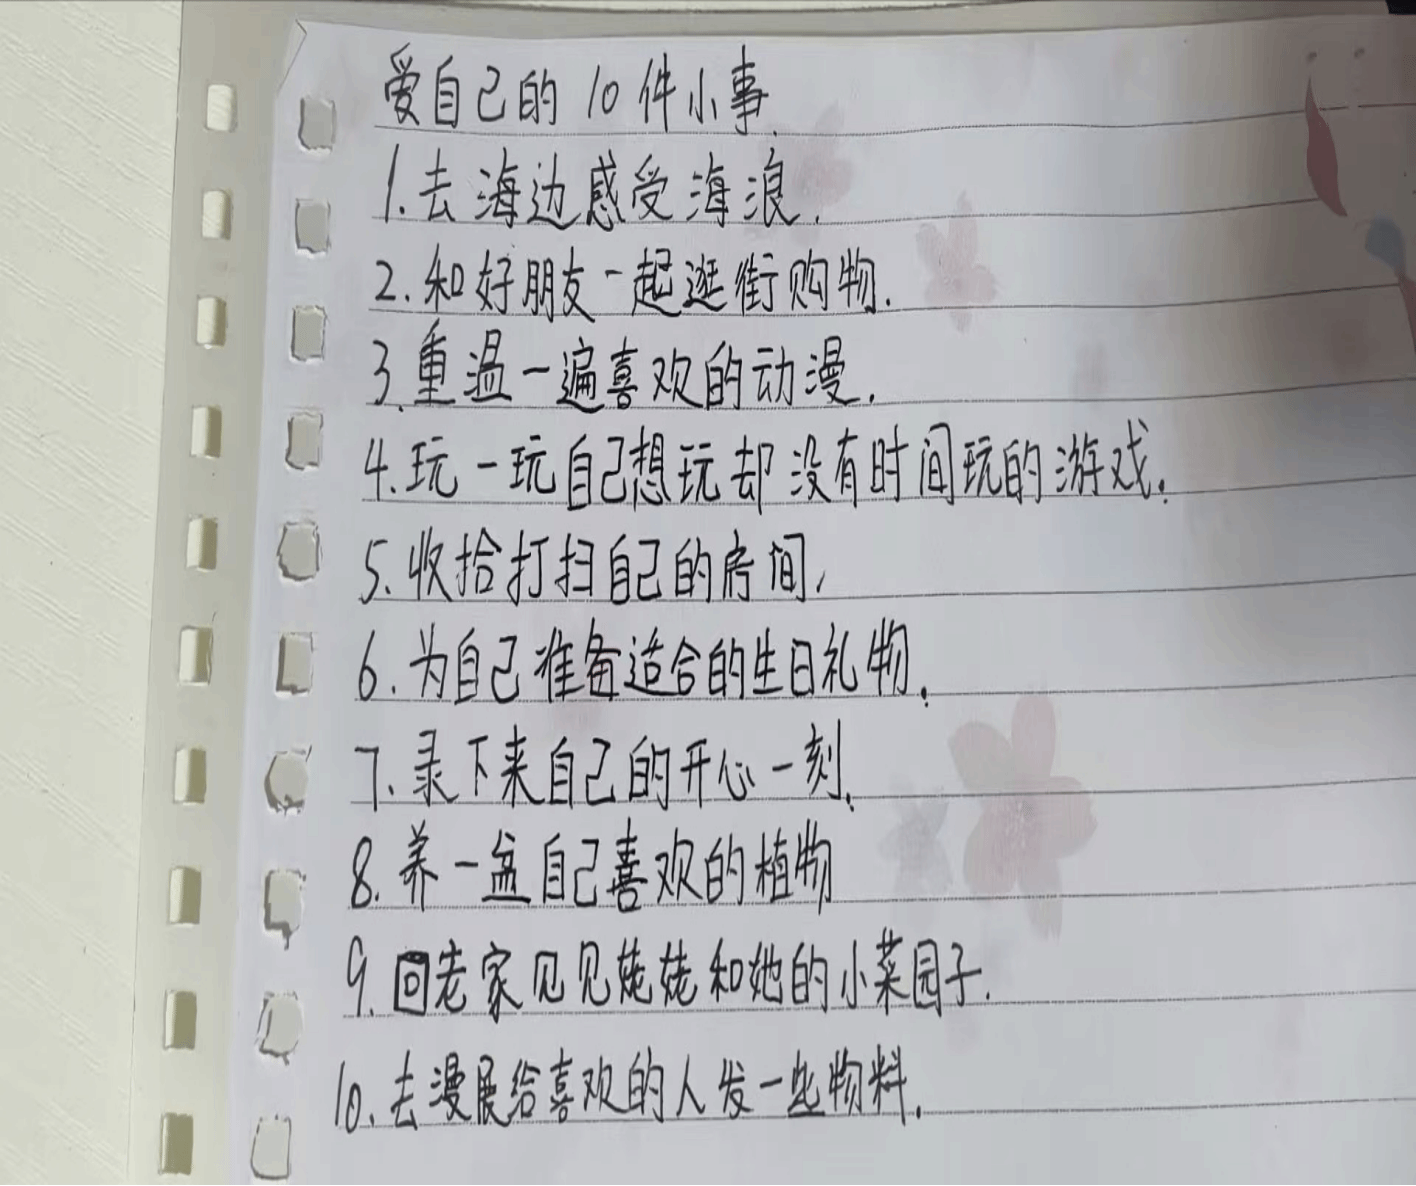 爱自己的10件小事.
1.去海边感受海浪.
2.和好朋友一起逛街购物.
3.重温一遍喜欢的动漫.
4.玩一玩自己想玩却没有时间玩的游戏.
5.收拾打扫自己的房间,
6.为自己准备适合的生日礼物.
7.录下来自己的开心一刻.
8.养一盆自己喜欢的植物
9.回老家见见姥姥和她的小菜园子.
10.去漫展给喜欢的人发一些物料.